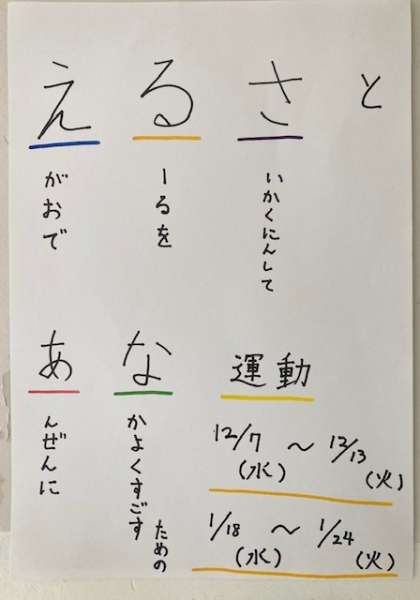 えるさと
がおで
ーるを
いかくにんして
あな運動
んぜんに
かよくすごす
ための
12/7(水)～12/13(火)
1/18(水)～1/24(火)